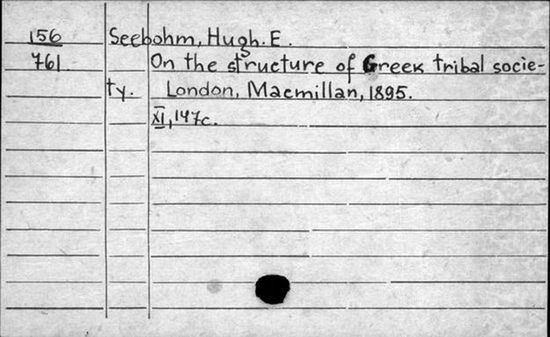 156 Seebohm, Hugh. E.
761 On the structure of Greek tribal socie-
ty. London, Macmillan, 1895.
XI, 147c.